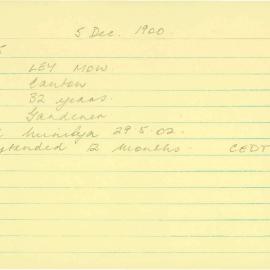 5 Dec. 1900
5
LEY MOW
Canton
32 years
Gardener
29.5.02.
extended 12 months. CEDT